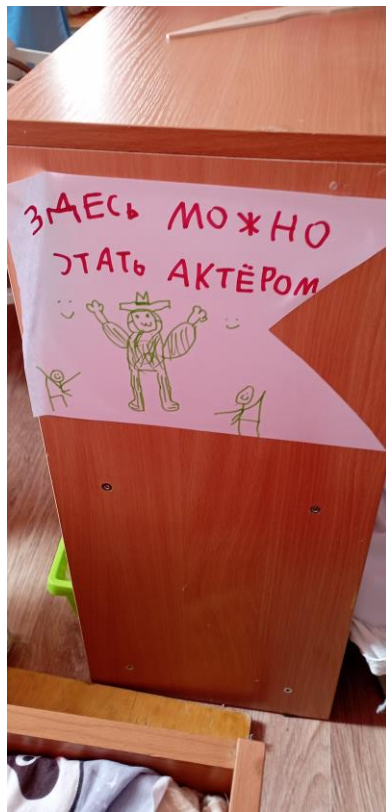 ЗДЕСЬ МОЖНО
СТАТЬ АКТЁРОМ